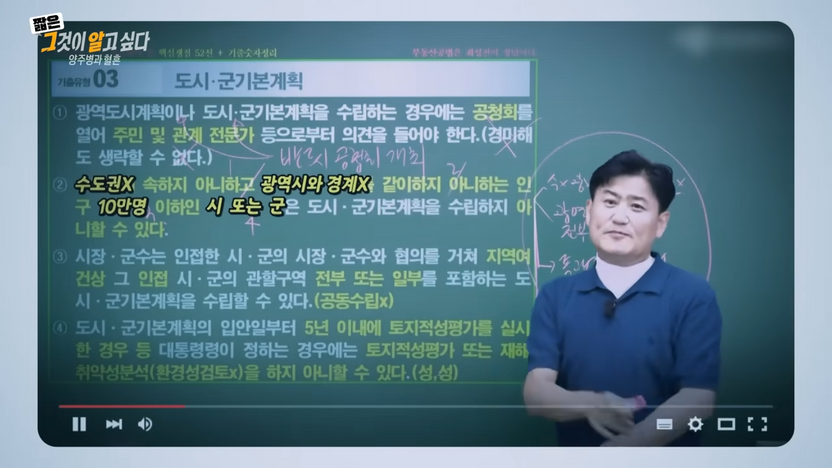 짧은
그것이 알고 싶다
양주병과 혈흔
핵심쟁점 52선 + 기출숫자정리
기출유형 03 도시·군기본계획
① 광역도시계획이나 도시·군기본계획을 수립하는 경우에는 공청회를
열어 주민 및 관계 전문가 등으로부터 의견을 들어야 한다.(경미해
도 생략할 수 없다.)
반드시 공청회 개최
② 수도권X 속하지 아니하고 광역시와 경계X 같이하지 아니하는 인
구 10만명 이하인 시 또는 군은 도시·군기본계획을 수립하지 아
니할 수 있다.
③ 시장·군수는 인접한 시·군의 시장·군수와 협의를 거쳐 지역여
건상 그 인접 시·군의 관할구역 전부 또는 일부를 포함하는 도
시·군기본계획을 수립할 수 있다.(공동수립x)
④ 도시·군기본계획의 입안일부터 5년 이내에 토지적성평가를 실시
한 경우 등 대통령령이 정하는 경우에는 토지적성평가 또는 재해
취약성분석(환경성검토x)을 하지 아니할 수 있다.(성,성)